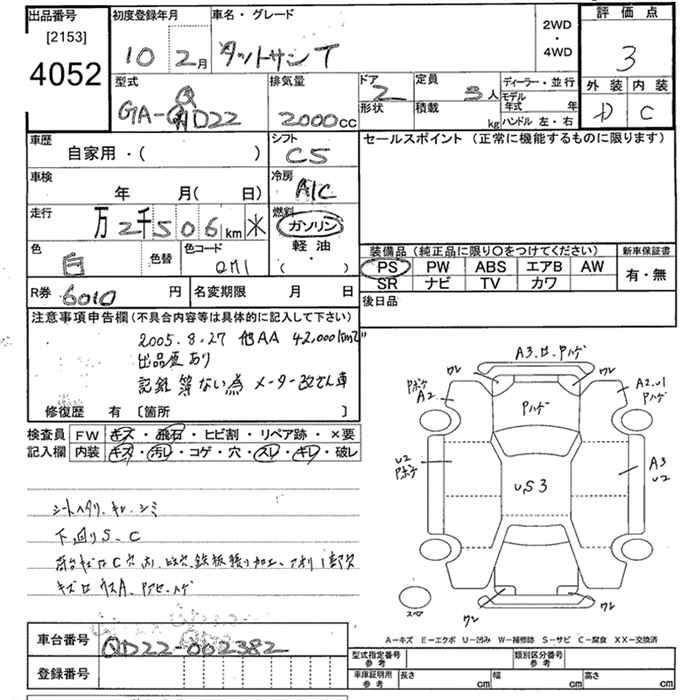 出品番号
[2153]
4052
初度登録年月
10 2月
車名・グレード
ダットサンT
2WD
・
4WD
評価点
3
外装 内装
D C
型式
GA-QD22
Q
排気量
2000cc
ドア 2
形状
定員 3人
積載 kg
ディーラー・並行
モデル
年式 年
ハンドル 左・右
車歴
自家用・( )
シフト
C5
車検
年 月( 日)
冷房
A/C
走行
万 2千506km
燃料
ガソリン
軽油
( )
色
白
色替
色コード
QM1
R券 6010 円
名変期限 月 日
セールスポイント (正常に機能するものに限ります)
装備品(純正品に限り〇をつけてください)
PS PW ABS エアB AW
SR ナビ TV カワ
新車保証書
有・無
後日品
注意事項申告欄(不具合内容等は具体的に記入して下さい)
2005.8.27 他AA 42,000km
出品歴あり
記録簿ない為 メーター改ざん車
修復歴 有 [箇所 ]
検査員
記入欄
FW キズ・飛石・ヒビ割・リペア跡・×要
内装 キズ・汚レ・コゲ・穴・スレ・キレ・破レ
シートヘタリ、キレ、シミ
下回りS、C
A3.ロ.Pハゲ
ワレ
ワレ
Pボケ
A2
Pハゲ
A2.U1
Pハゲ
U2
Pボケ
U,S3
A3
U2
ワレ
ワレ
スペア
A-キズ E-エクボ U-凹み W-補修跡 S-サビ C-腐食 XX-交換済
車台番号 QD22-002382
登録番号
型式指定番号
参考
類別区分番号
参考
車庫証明用
参考
長さ cm
幅 cm
高さ cm